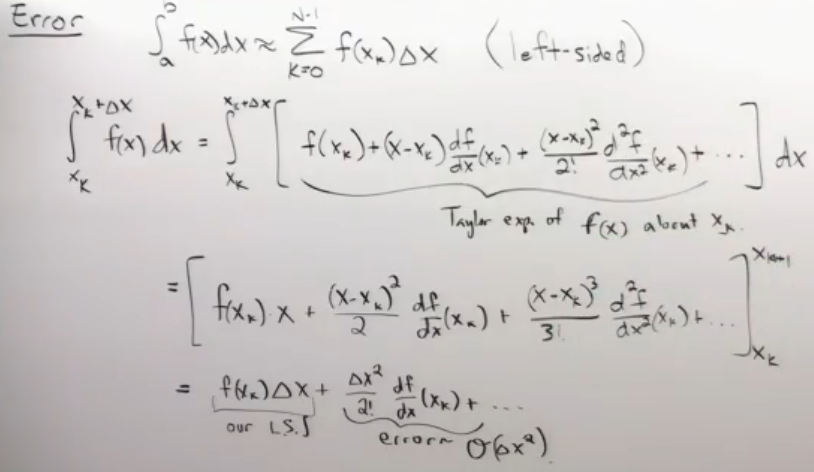 Error ∫_a^b f(x)dx ≈ Σ_{k=0}^{N-1} f(x_k)Δx (left-sided)
∫_{x_k}^{x_k+Δx} f(x) dx = ∫_{x_k}^{x_k+Δx} [ f(x_k)+(x-x_k) df/dx (x_k) + (x-x_k)^2/2! d^2f/dx^2 (x_k) + ... ] dx
Taylor exp. of f(x) about x_k.
= [ f(x_k) x + (x-x_k)^2/2 df/dx (x_k) + (x-x_k)^3/3! d^2f/dx^2 (x_k) + ... ]_{x_k}^{x_{k+1}}
= f(x_k)Δx + Δx^2/2! df/dx (x_k) + ...
our L.S.∫ error ~ O(Δx^2)